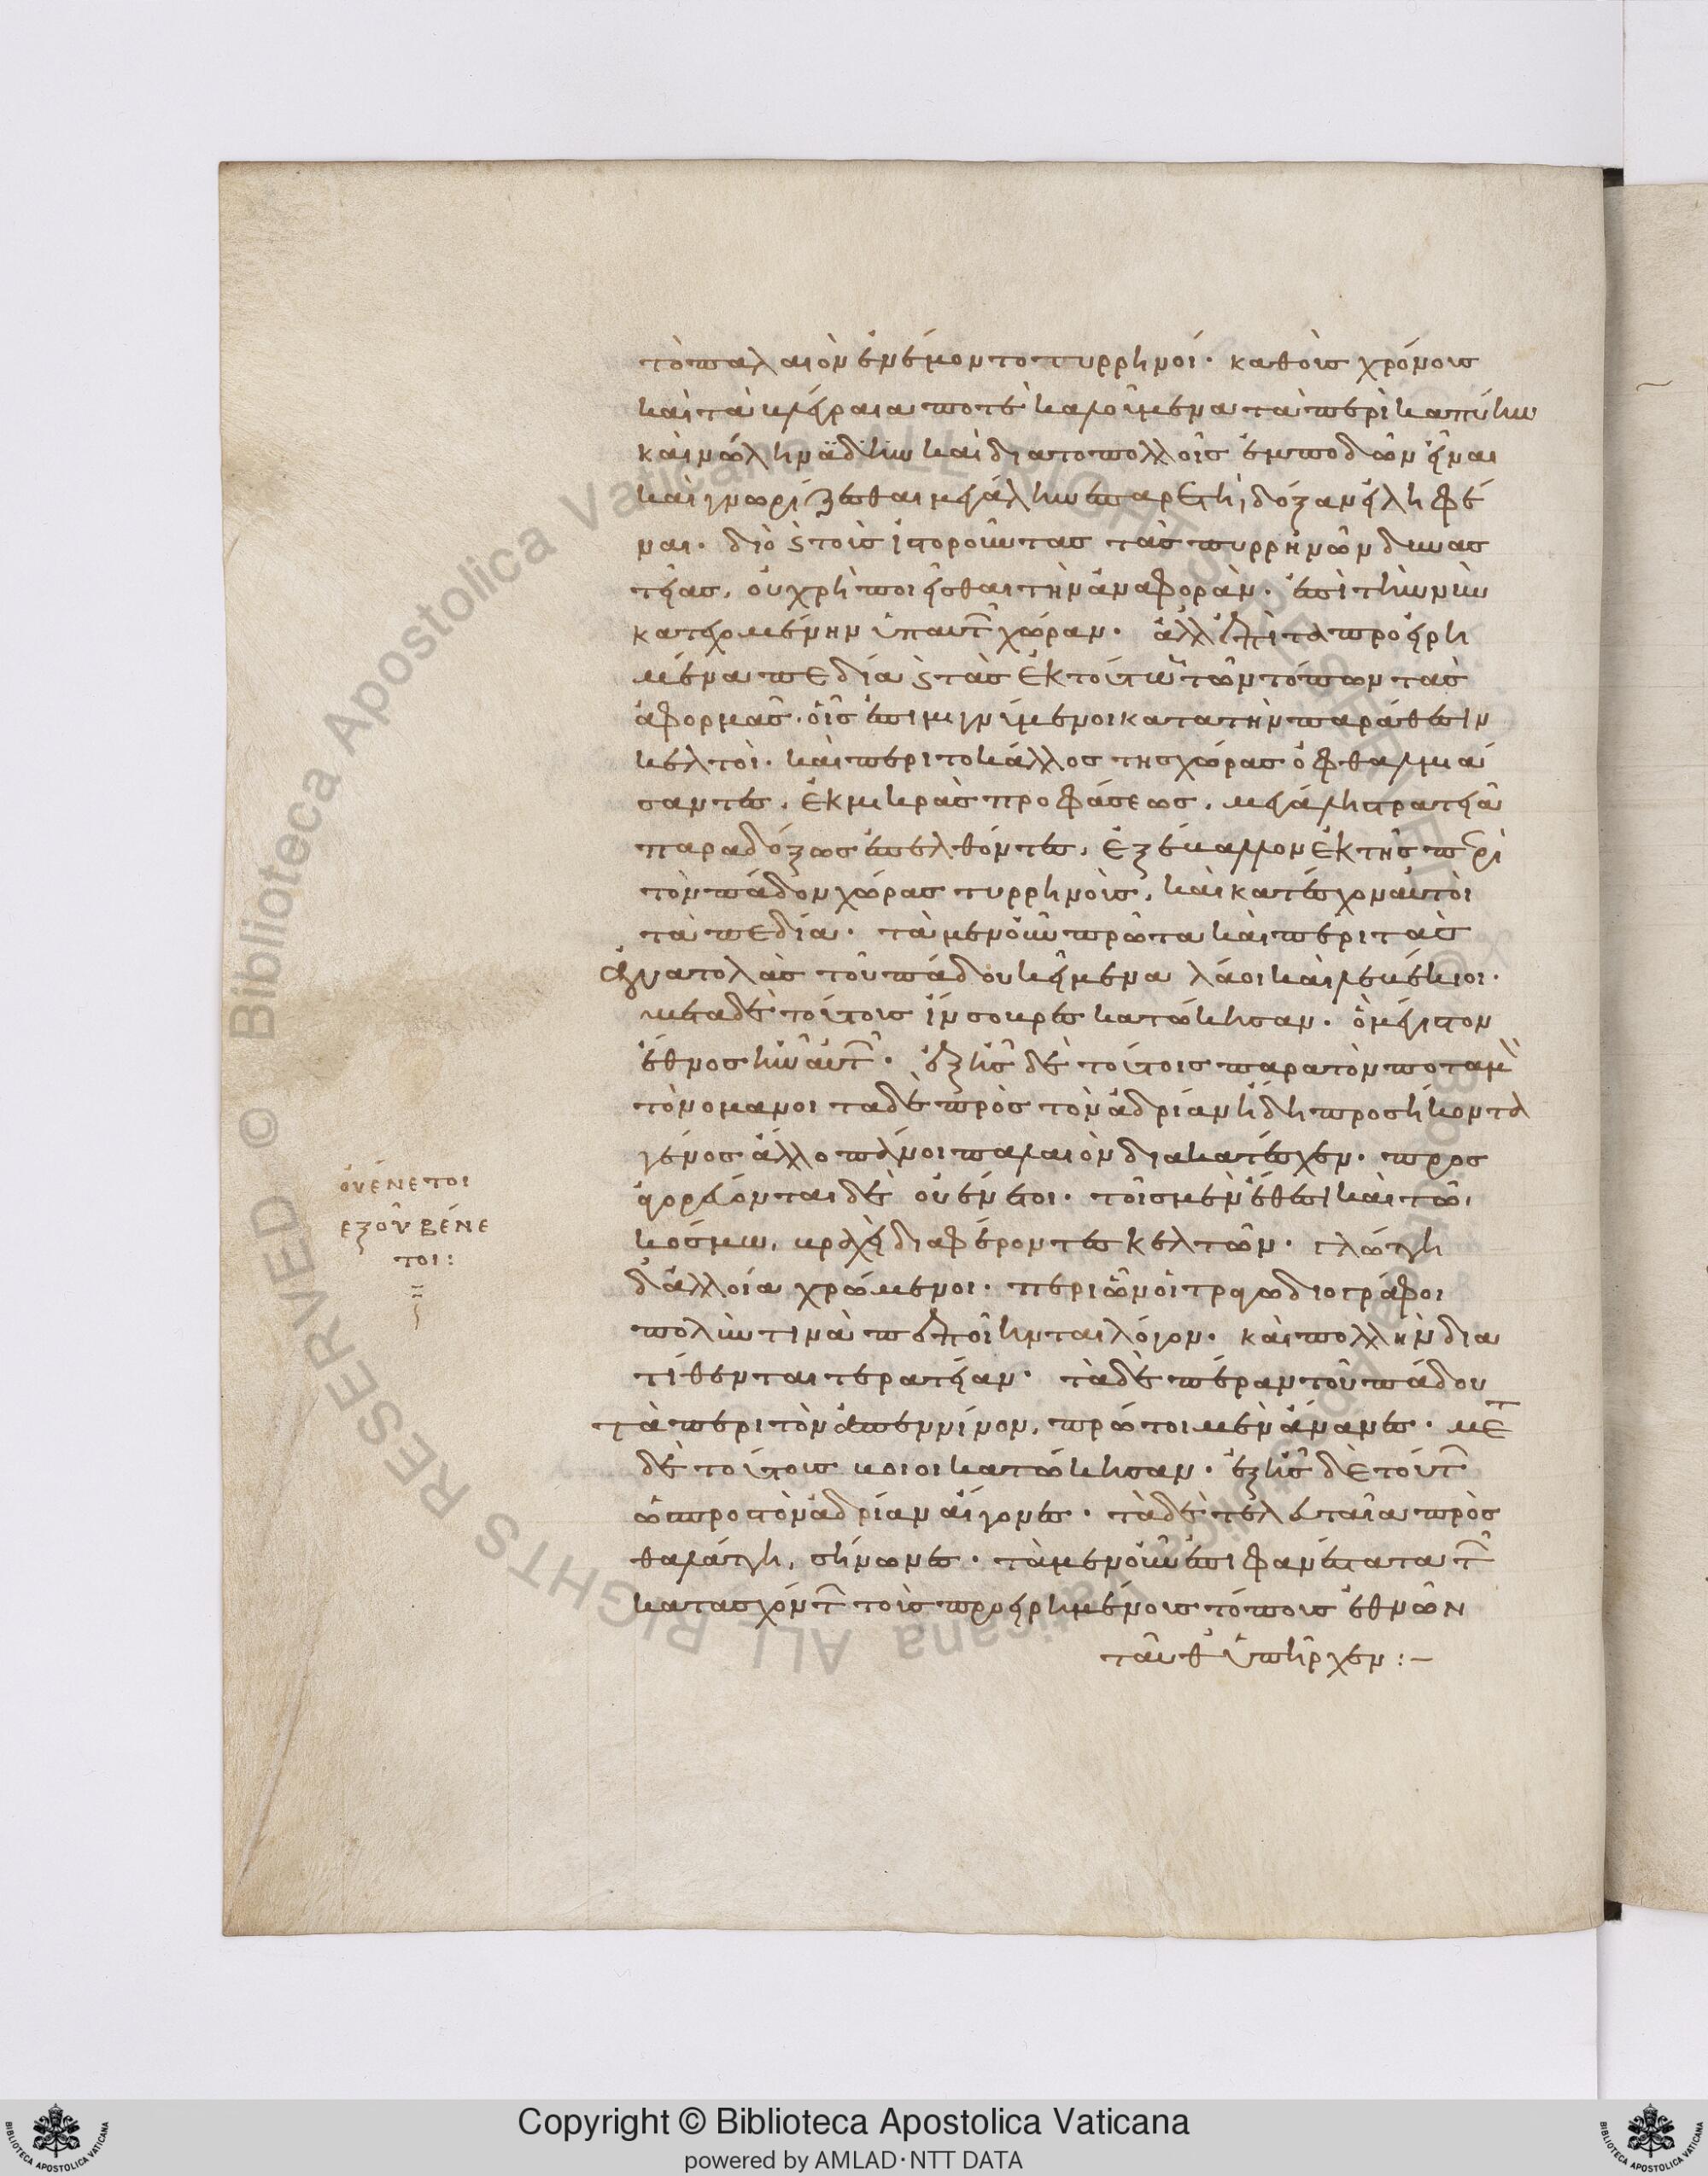 τὸ παλαιὸν ἐνέμοντο τυρρηνοί· καθ οὓς χρόνους
καὶ τὰ φλέγραια ποτὲ καλούμενα τὰ περὶ καπύην
καὶ νώλην ἅδην καὶ δια το πολλοῖς ἐμποδὼν εἶναι
καὶ γνωρίζεσθαι μεγάλην ἐπ ἀρετῆι δόξαν εἰληφέ
ναι· διὸ ϛ τοὺς ἱστοροῦντας τὰς τυρρηνῶν δυνασ
τείας, οὐ χρὴ ποιεῖσθαι τὴν ἀναφορὰν· ἐπὶ τὴν νῦν
κατεχομένην ὑπ αυτ χώραν· ἀλλ ἐπὶ τα προειρη
μένα πεδία ϛ τὰς ἐκ τούτων τῶν τόπων τὰς
ἀφορμὰς· οἷς ἐπιμιγνύμενοι κατα τὴν παράθεσιν
κελτοὶ· καὶ περι το κάλλος της χώρας ὀφθαλμιά
σαντες, ἐκ μικρᾶς προφάσεως, μεγάλη στρατειᾶ
παραδόξως ἐπελθόντες, ἐξέβαλλον ἐκ τῆς περὶ
τὸν πάδον χώρας τυρρηνοὺς, καὶ κατέσχον αὐτοὶ
τὰ πεδία· τὰ μεν οὖν πρῶτα καὶ περι τὰς
ἀνατολὰς τοῦ πάδου κείμενα λάοι καὶ λεβέκιοι·
μετα δὲ τούτους ἴνσουβρες κατώκησαν· ὃ μέγιστον
ἔθνος ἦν αὐτ· ἑξῆς δὲ τούτοις παρα τὸν ποταμὸν
γονομανοι τα δὲ πρὸς τὸν ἀδρίαν ἤδη προσήκοντα
γένος ἄλλο πάνυ παλαιὸν διακατέσχεν· προσ
αγορεύονται δὲ οὐένετοι· τοῖς μεν ἔθεσι καὶ τῶ
κόσμω, βραχεῖ διαφέροντες κελτῶν· γλώττη
δ ἀλλοία χρώμενοι· περι ὧν οἱ τραγωδιογράφοι
πολύν τινα πεποίηνται λόγον· καὶ πολλὴν δια
τίθενται τερατείαν· τὰ δὲ πέραν τοῦ πάδου
τὰ περι τὸν ἀπεννίνον, πρῶτοι μεν ἄναρες· μετ
δὲ τούτους βοιοι κατώκησαν· ἑξῆς δὲ τούτ
ὡς προς τὸν ἀδρίαν αἴγονες· τὰ δὲ τελευταῖα πρὸς
θαλάττη, σήνωνες· τὰ μεν οὖν ἐπιφανέστατα τ
κατασχόντ τοὺς προειρημένους τόπους ἐθνῶν
ταῦθ ὑπῆρχεν :–
ὀυένετοι
εξ οὗ βένε
τοι :
Copyright © Biblioteca Apostolica Vaticana
powered by AMLAD·NTT DATA